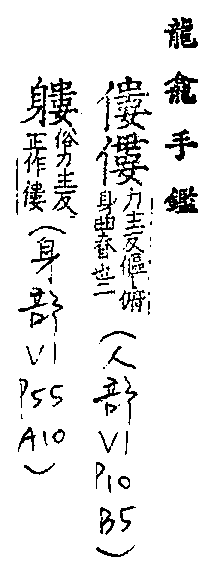 龍龕手鑑
僂僂力主反傴僂俯
身曲脊也二
(人部V1P10B5)
軁俗力主反
正作僂
(身部V1P55A10)